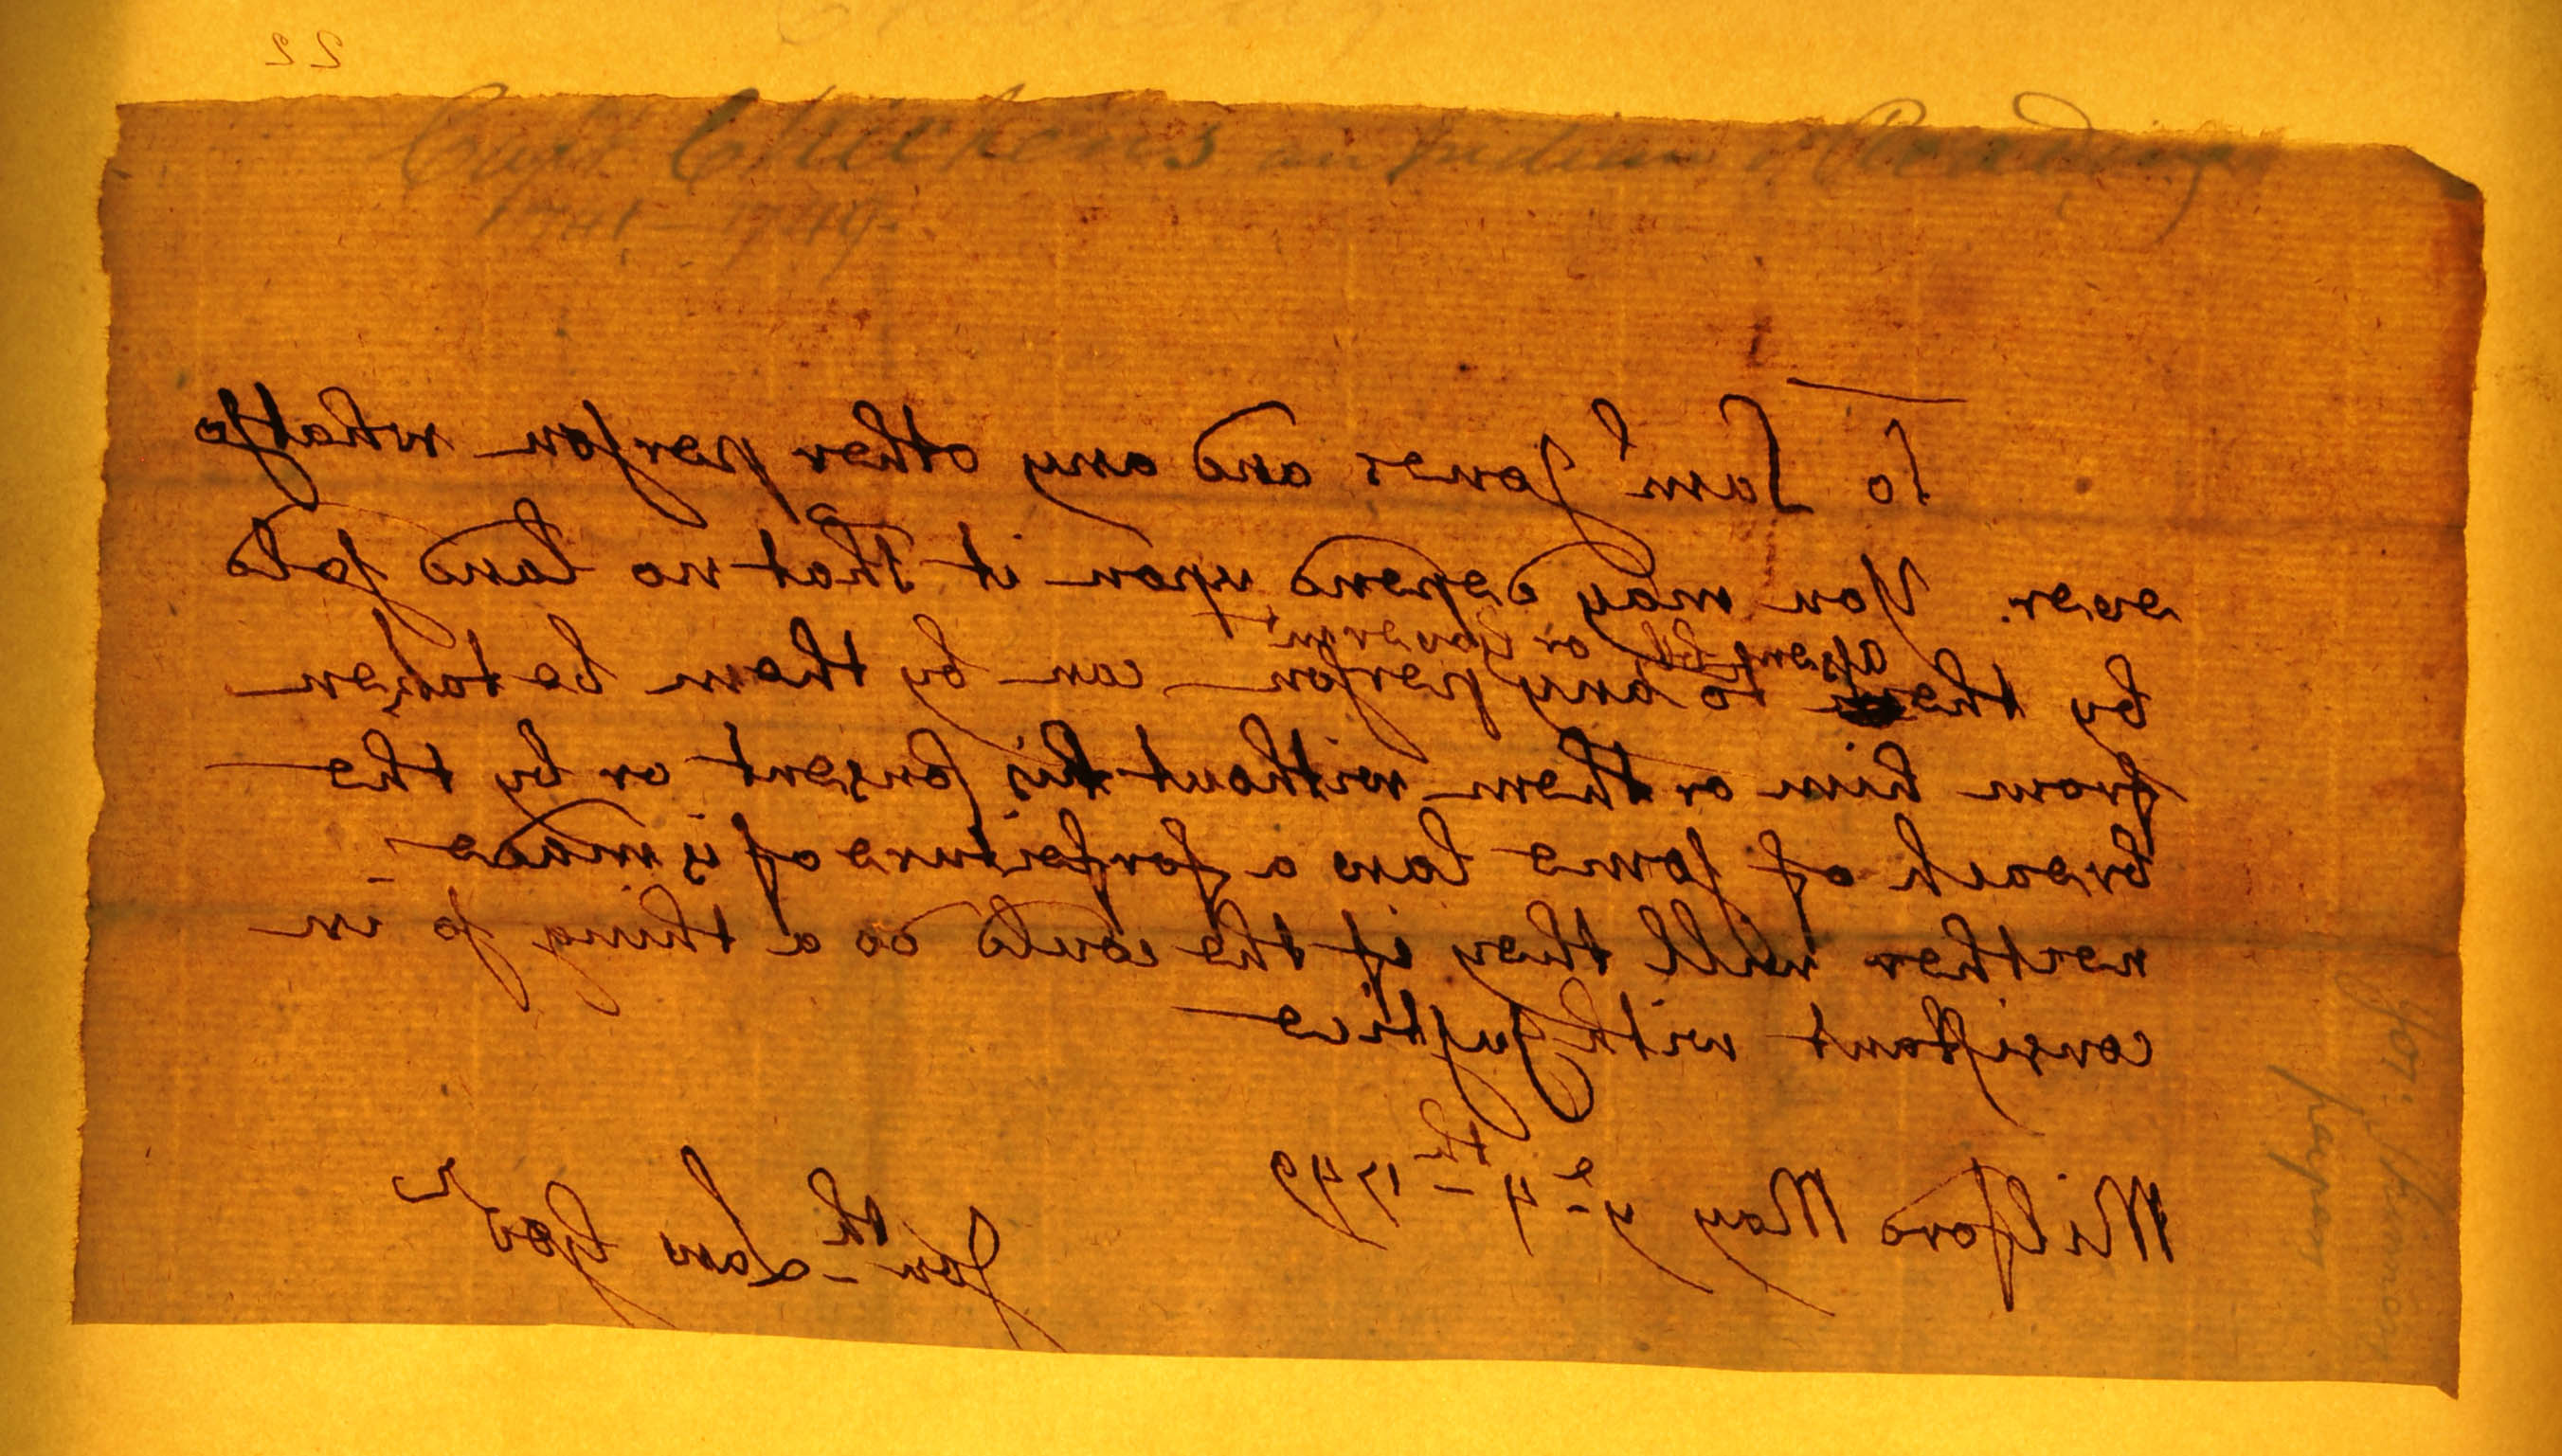 22
Capt Chickens an Indian of Reading
1741 - 1749.
To Sam^ll Jones and any other person whatso
ever. You may depend upon it That no land sold
by the to any person can by them be taken
assembly or Goverm^t
from him or them without his consent or by the
breach of some law a forfeiture of is made
neither will they if the could do a thing so in
consistant with Justice
Milford May y^e 4^th 1749
Jon^th Law Gov^r